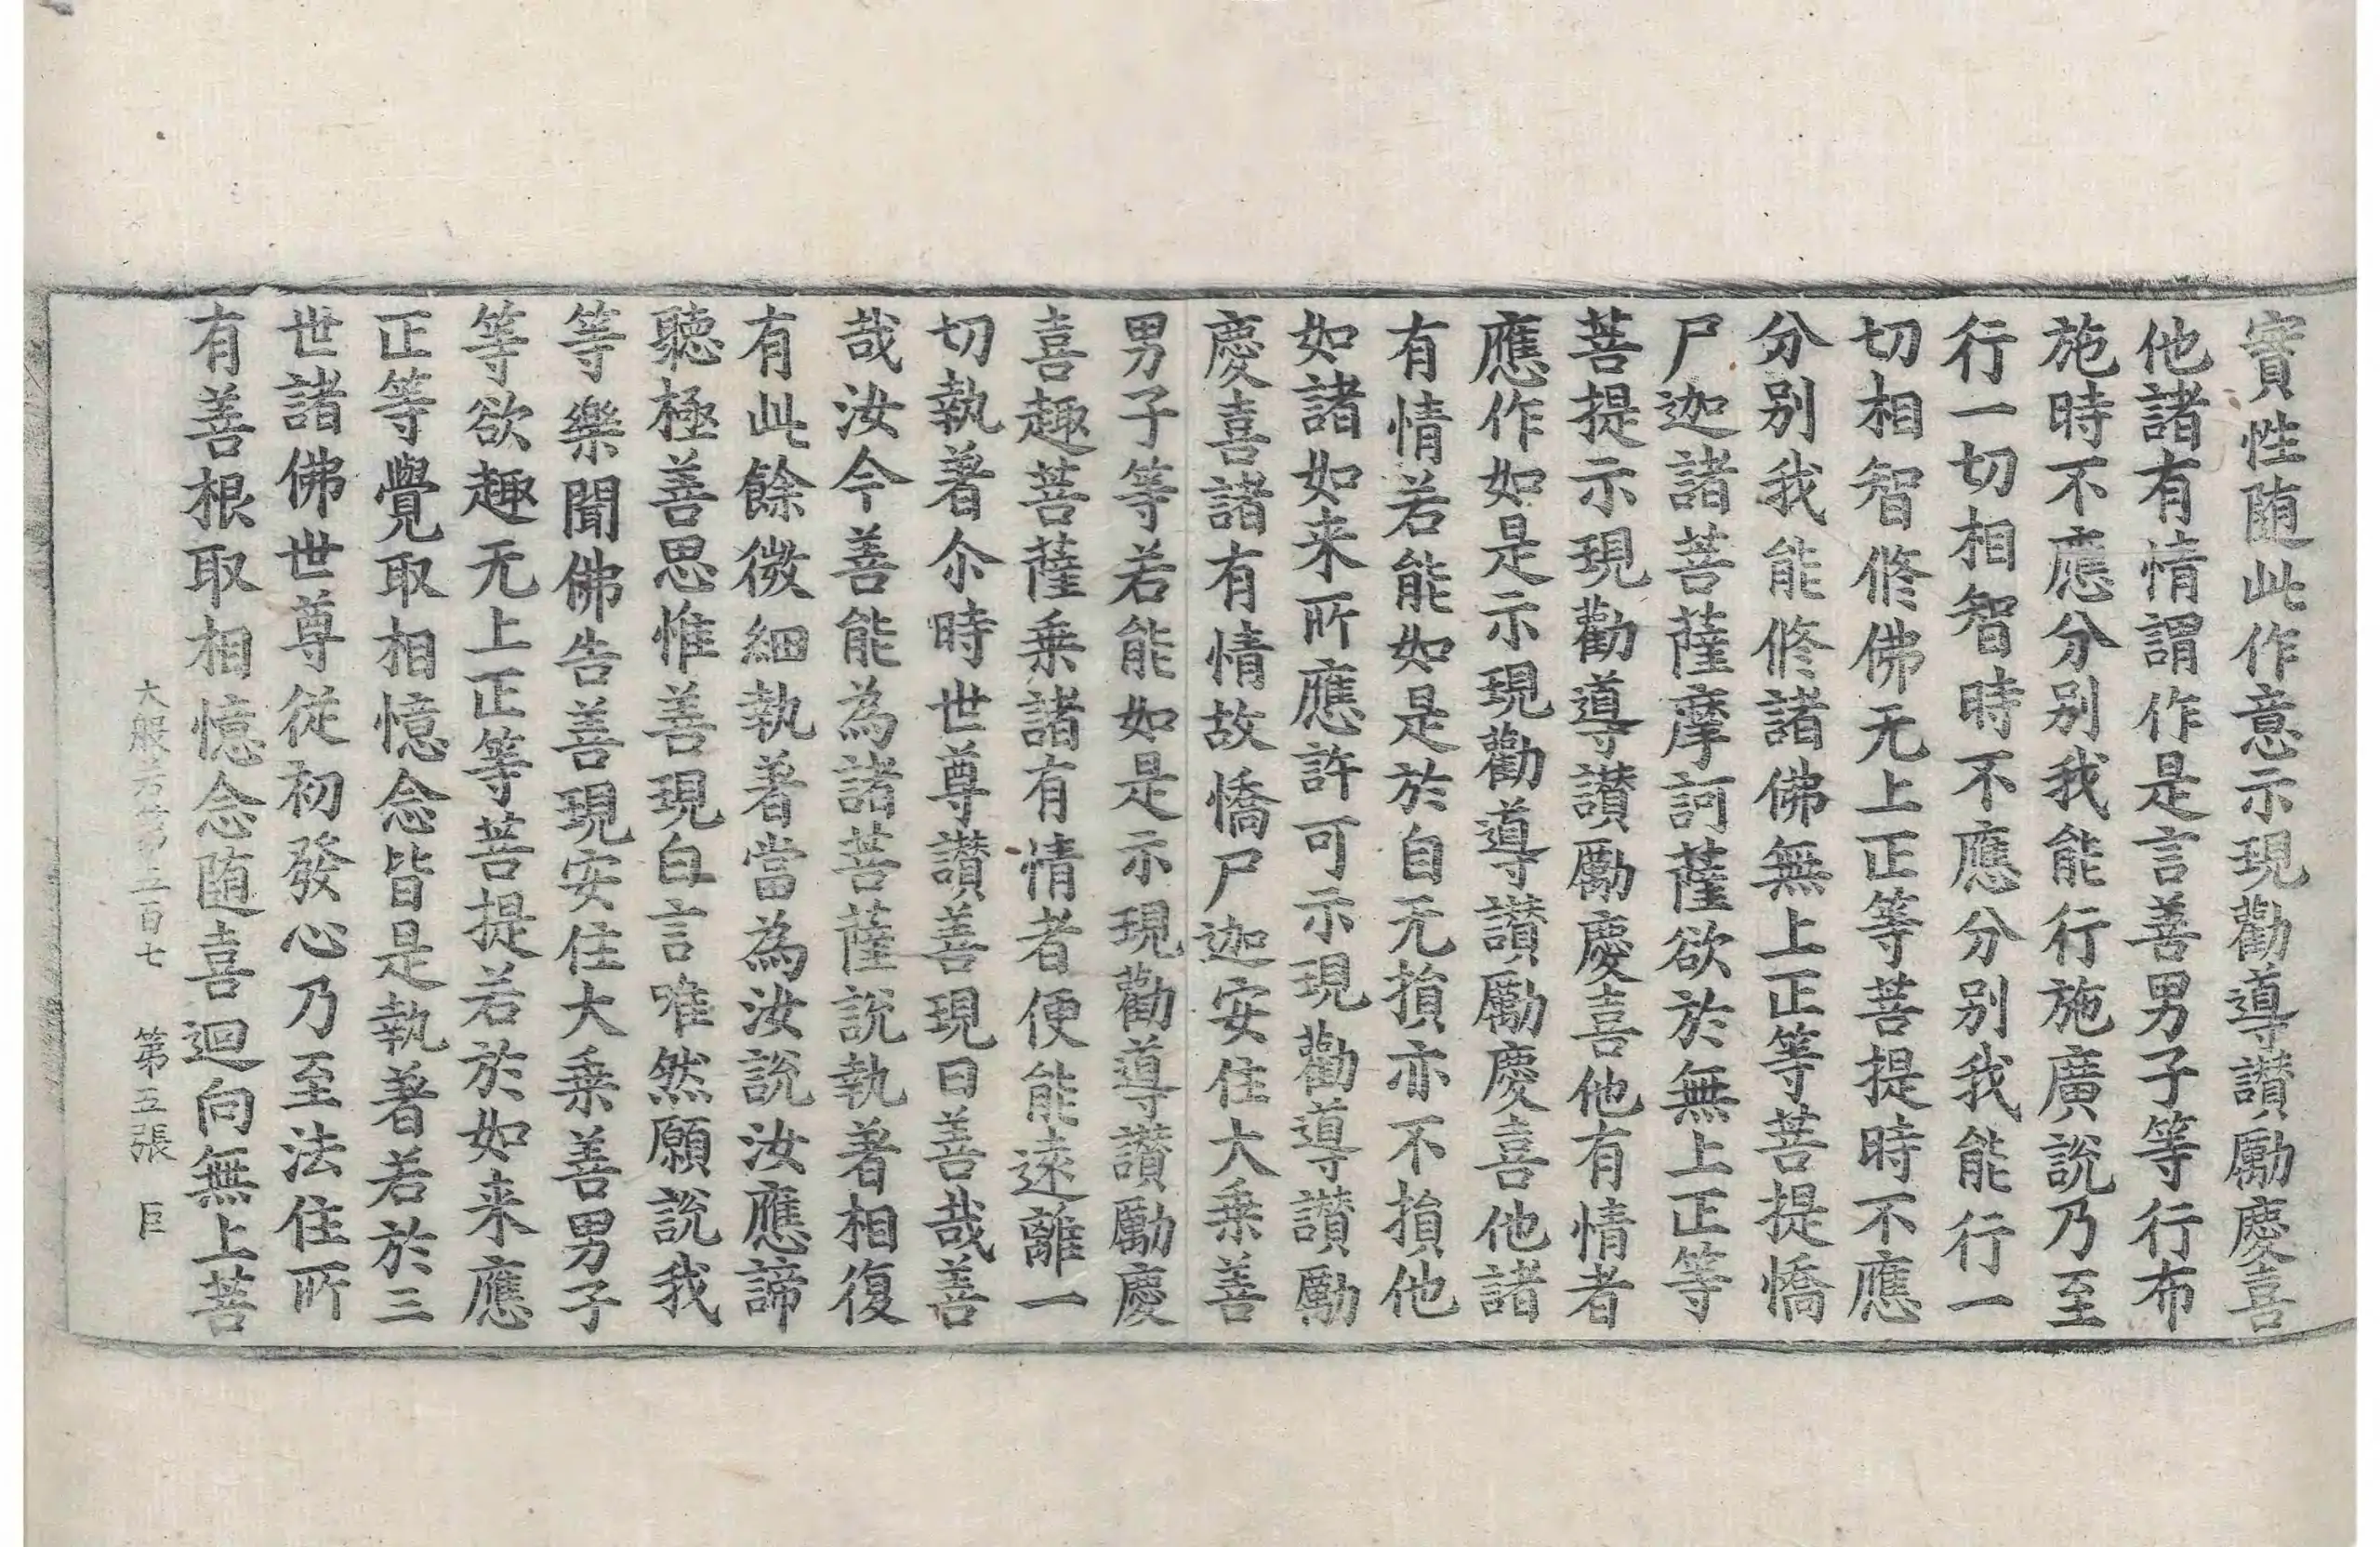 實性随此作意示現勸導讃勵慶喜
他諸有情謂作是言善男子等行布
施時不應分別我能行施廣說乃至
行一切相智時不應分別我能行一
切相智修佛无上正等菩提時不應
分別我能修諸佛無上正等菩提憍
尸迦諸菩薩摩訶薩欲於無上正等
菩提示現勸導讃勵慶喜他有情者
應作如是示現勸導讃勵慶喜他諸
有情若能如是於自无損亦不損他
如諸如来所應許可示現勸導讃勵
慶喜諸有情故憍尸迦安住大乗善
男子等若能如是示現勸導讃勵慶
喜趣菩薩乗諸有情者便能遠離一
切執著尒時世尊讃善現曰善哉善
哉汝今善能為諸菩薩說執著相復
有此餘微細執著當為汝說汝應諦
聽極善思惟善現白言唯然願說我
等樂聞佛告善現安住大乗善男子
等欲趣无上正等菩提若於如来應
正等覺取相憶念皆是執著若於三
世諸佛世尊従初發心乃至法住所
有善根取相憶念随喜迴向無上菩
大般若第三百七 第五張 巨